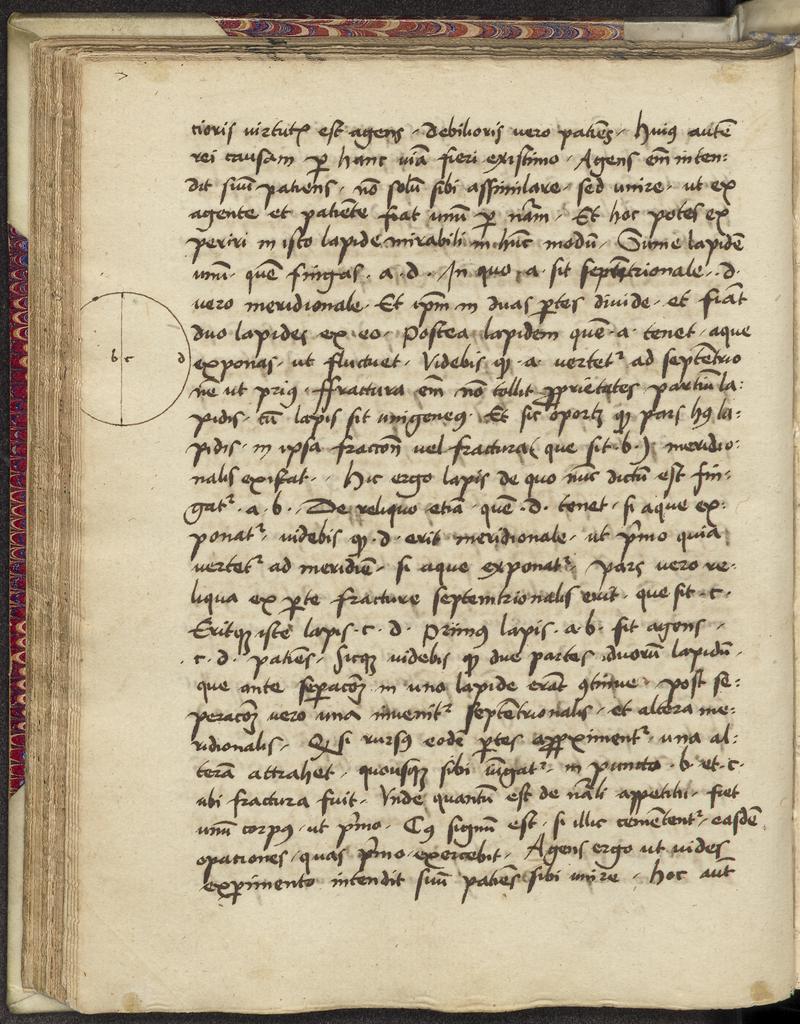 cioris virtutꝭ est agens · debilioris vero patiēs · Huiꝰ autē
rei causam ꝑ hanc viā fieri existimo · Agens em̄ inten:
dit suū patiens · nō solū sibi assimilare · sed unire · ut ex
agente et patiēte fiat unū ꝑ nām · Et hoc potes ex
periri in isto lapide mirabili in hūc modū · Sume lapidē
unū · quē fingas · a · d · In quo · a · sit septētrionale · d ·
vero meridionale · Et ip̄m in duas ꝑtes divide · et fiāt
duo lapides ex eo · Postea lapidem quē · a · tenet · aque
exponas · ut fluctuet · Videbis ꝙ · a · vertetᷣ ad septētrio
ne ut priꝰ · ffractura em̄ nō tollit ꝓprietates partiū la:
pidis · cū lapis sit unigeneꝰ · Et sic oportꝫ ꝙ pars hꝰ la:
pidis · in ipsa fraccōn vel fractura ( que sit · b · ) meridio:
nalis existat · Hic ergo lapis de quo nūc dictū est fin:
gatᷣ · a · b · De reliquo etiā · quē · d · tenet · si aque ex:
ponatᷣ · videbis ꝙ · d · erit meridionale · ut pͥmo quia
vertetᷣ ad meridiē · si aque exponatᷣ · Pars vero re:
liqua ex ꝑte fracture septemtrionalis erit · que sit · c ·
Eritqꝫ iste lapis · c · d · Primꝰ lapis · a · b · sit agens ·
· c · d · patiēs · Sicqꝫ videbis ꝙ due partes duorū lapidū ·
que ante sepacōꝫ in uno lapide erāt ꝯtinue · post se:
peracōꝫ vero una invenitᷣ septētrionalis · et altera me:
ridionalis · Qꝫ si rursꝰ eodē ꝑtes aꝓximentᷣ · una al:
terā attrahet · quousqꝫ sibi iūgātᷣ · in puncto · b · et · c ·
ubi fractura fuit · Unde quantū est de nāli appetitu · fiet
unū corpꝰ · ut pͥmo · Cꝰ signū est · si illic cemētentᷣ · easdē
opationes · quas pͥmo · exercebit · Agens ergo ut vides
exꝑimento intendit suū patiēs sibi unire · hoc aūt
b c
d